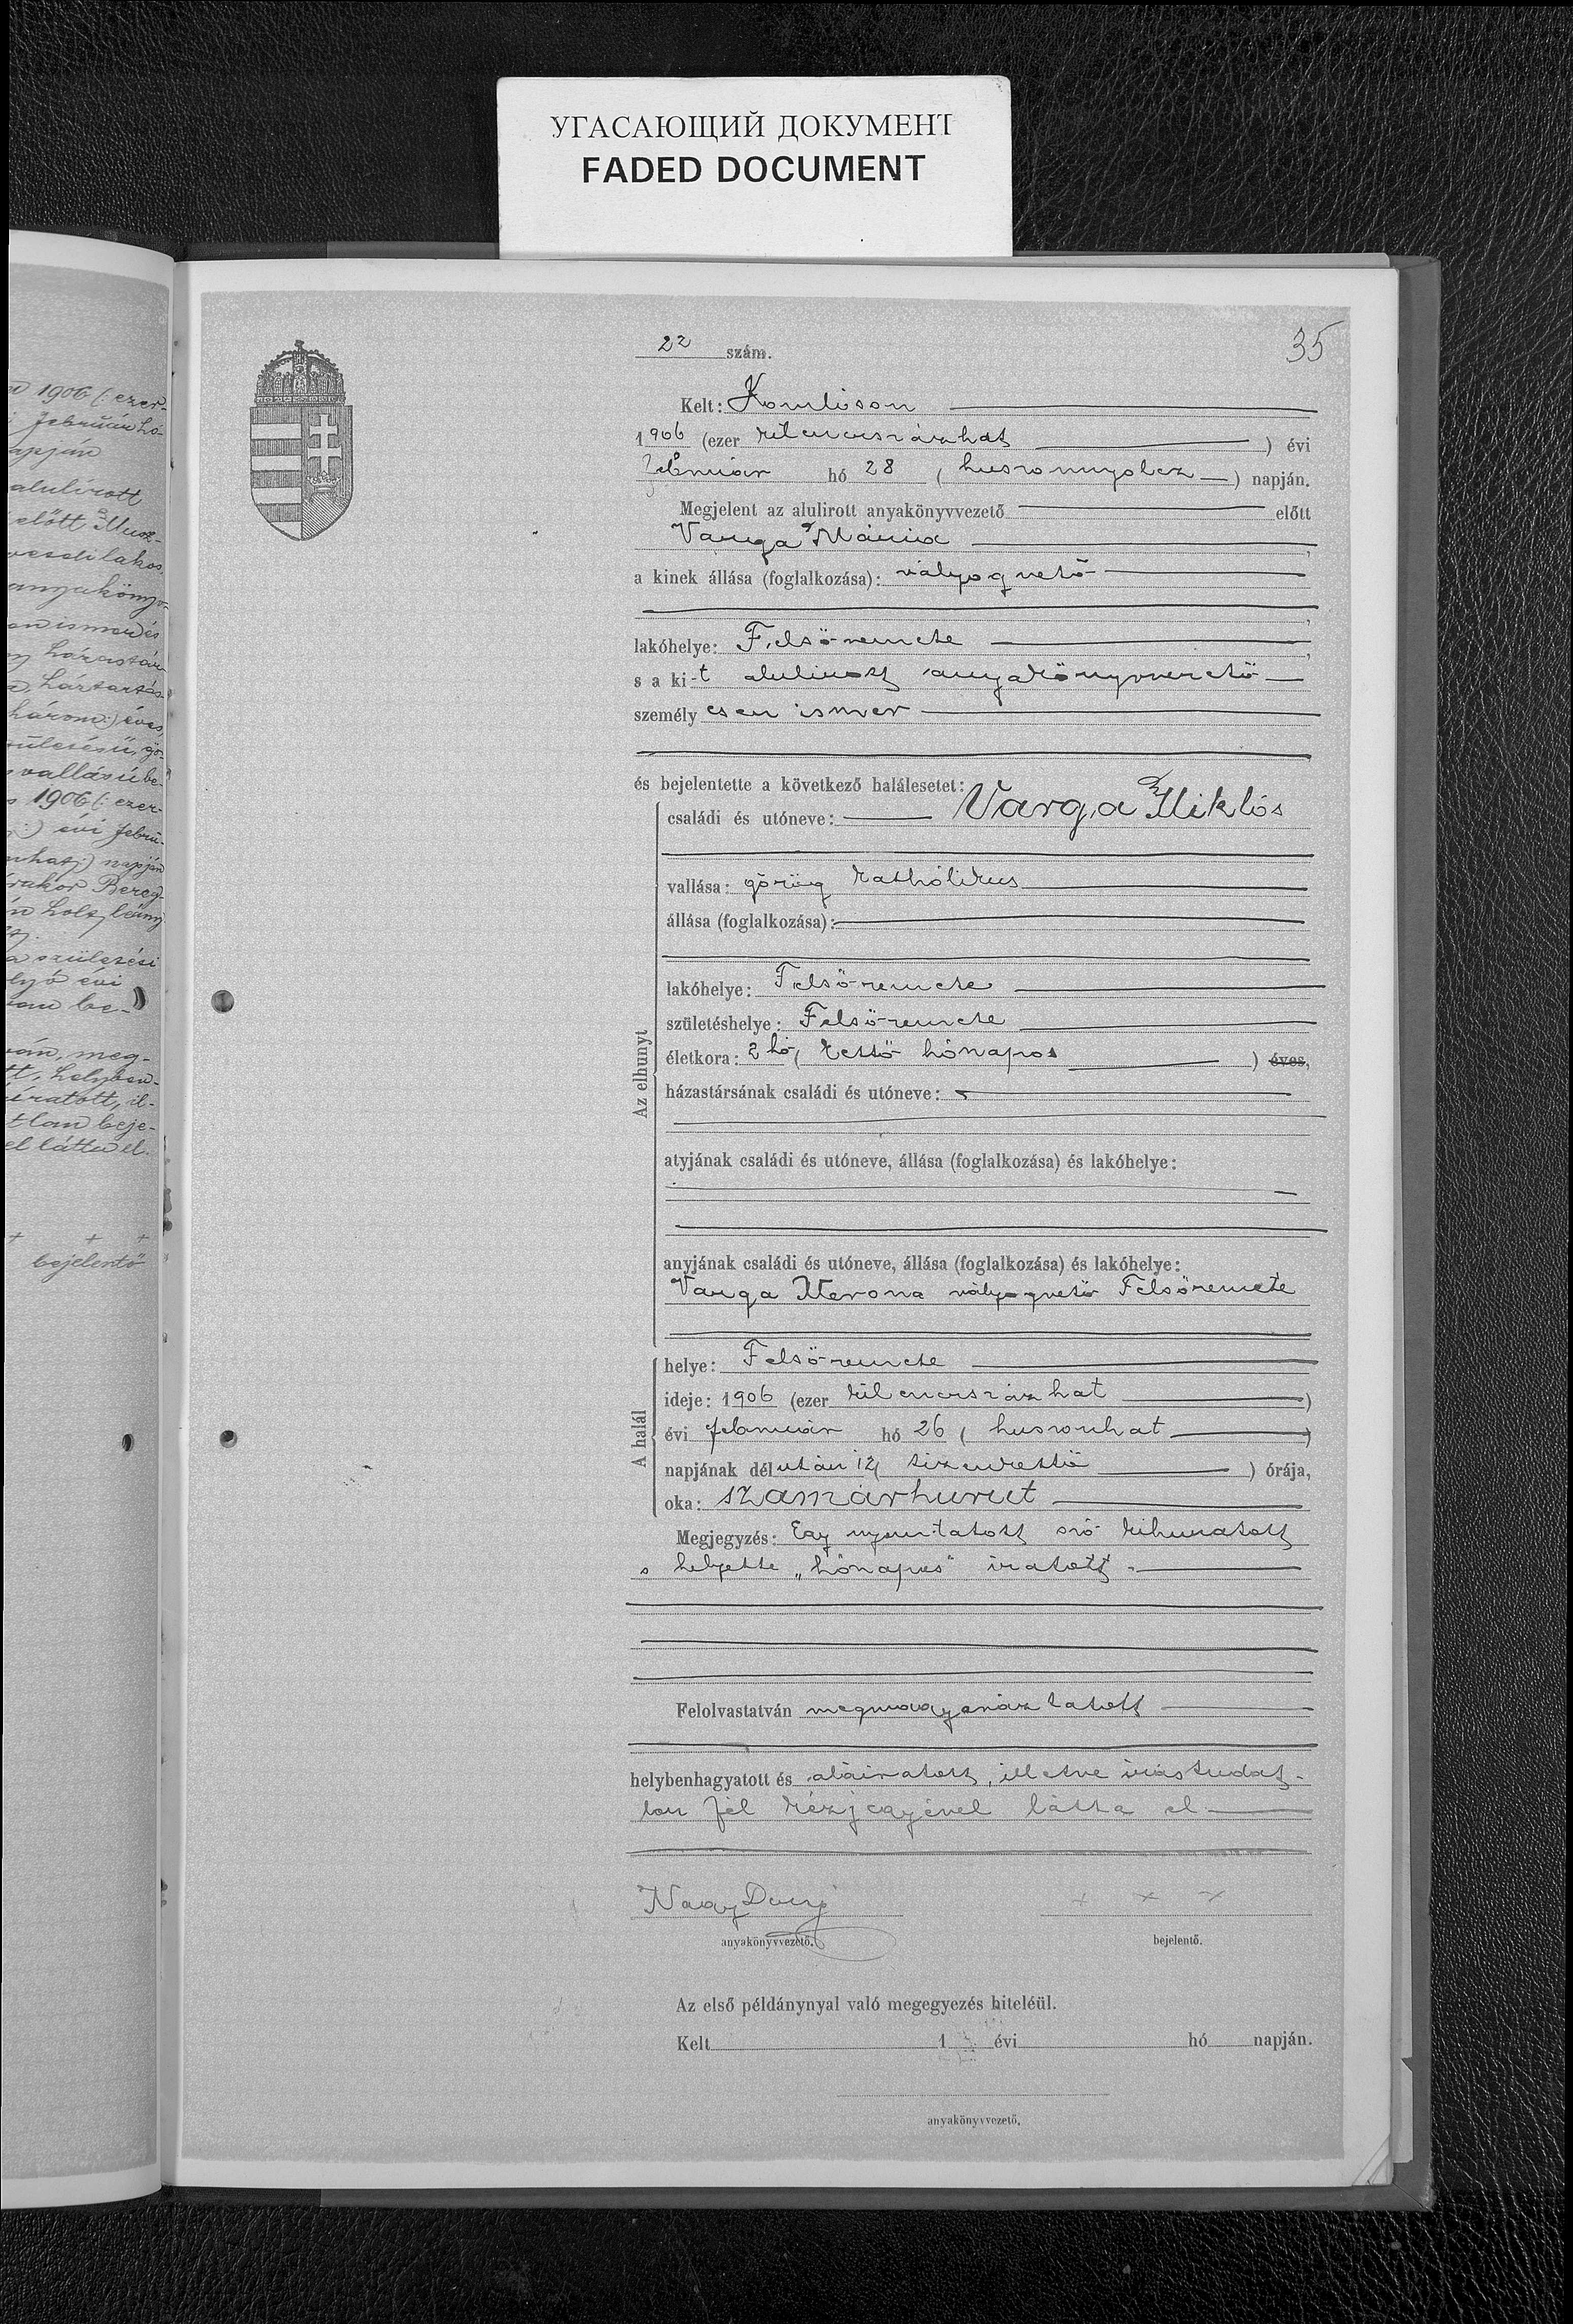 УГАСАЮЩИЙ ДОКУМЕНТ
FADED DOCUMENT
1906 (: ezer-
február hó-
napján
alulírott
előtt Musz-
lakos,
anyakönyv-
ismer és
háztartás-
három :) éves,
születésű, gö-
vallású be-
1906 (: ezer-
:) évi febru-
hat :) napján
Bereg-
holt leány
születési
évi
be-
meg-
helyben-
iratott, il-
tlan beje-
el látta el.
+ + +
bejelentő
35
22 szám.
Kelt: Komlóson
1906 (ezer kilenczszázhat) évi
február hó 28 (huszonnyolcz) napján.
Megjelent az alulirott anyakönyvvezető előtt
Varga Mária,
a kinek állása (foglalkozása): vályogvető
lakóhelye: Felsőremete,
s a ki-t alulirott anyakönyvvezető
személyesen ismer
és bejelentette a következő halálesetet:
családi és utóneve: Varga Miklós
vallása: görög katholikus
állása (foglalkozása):
lakóhelye: Felsőremete
születéshelye: Felsőremete
életkora: 2 hó (kettő hónapos) éves,
házastársának családi és utóneve:
Az elhunyt
atyjának családi és utóneve, állása (foglalkozása) és lakóhelye:
anyjának családi és utóneve, állása (foglalkozása) és lakóhelye:
Varga Ilona vályogvető Felsőremete
helye: Felsőremete
ideje: 1906 (ezer kilenczszázhat)
évi február hó 26 (huszonhat)
A halál
napjának délután 12 (tizenkettő) órája,
oka: szamárhurut
Megjegyzés: Egy nyomtatott szó kihuzatott
s helyette „hónapos" iratott.
Felolvastatván megmagyaráztatott
helybenhagyatott és aláiratott, illetve irástudat-
lan fél kézjegyével látta el
Nagy
anyakönyvvezető.
+ + +
bejelentő.
Az első példánynyal való megegyezés hiteléül.
Kelt 1 évi hó napján.
anyakönyvvezető.